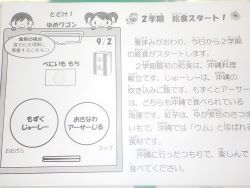 とどけ！
ゆめワゴン
食育の視点
9／2
べにいも もち
もずく
じゅーしー
おきなわ
アーサーじる
おおざら
カップ
２学期　給食スタート！
夏休みがおわり、今日から２学期
の給食がスタートします。
２学期最初の給食は、沖縄料理
献立です。じゅーしーは、沖縄の
炊き込みご飯です。もずくとアーサー
は、どちらも沖縄で食べられている
海藻です。紅芋は、中が紫色のさつま
いもで、沖縄では「うむ」と呼ばれる
食材です。
沖縄に行ったつもりで、楽しんで
食べてください。